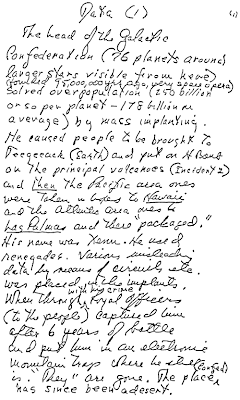 Data (1) (1)
The head of the Galactic
Confederation (76 planets around
larger stars visible from here)
(founded 95,000,000 yrs ago, very space opera)
solved overpopulation (250 billion
or so per planet – 178 billion on
average) by mass implanting.
He caused people to be brought to
Teegeeack (Earth) and put an H Bomb
on the principal volcanoes (Incident 2)
and then the Pacific area ones
were taken in boxes to Hawaii
and the Atlantic area ones to
Las Palmas and there "packaged."
His name was Xenu. He used
renegades. Various misleading
data by means of circuits etc.
was placed in the implants.
When through with his crime
Loyal Officers
(to the people) captured him
after 6 years of battle
and put him in an electronic
mountain trap where he still
is. "They" are gone. The place (Confed.)
has since been a desert.